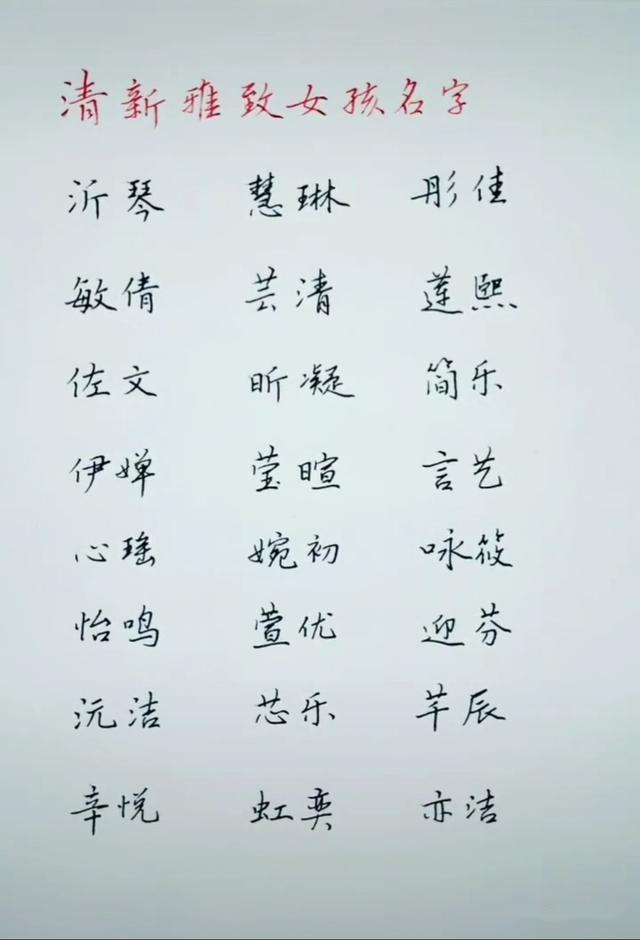 清新雅致女孩名字
沂琴 慧琳 彤佳
敏倩 芸清 莲熙
佐文 昕凝 简乐
伊婵 莹暄 言艺
心瑶 婉初 咏筱
怡鸣 萱优 迎芬
沅洁 芯乐 芊辰
辛悦 虹奕 亦洁